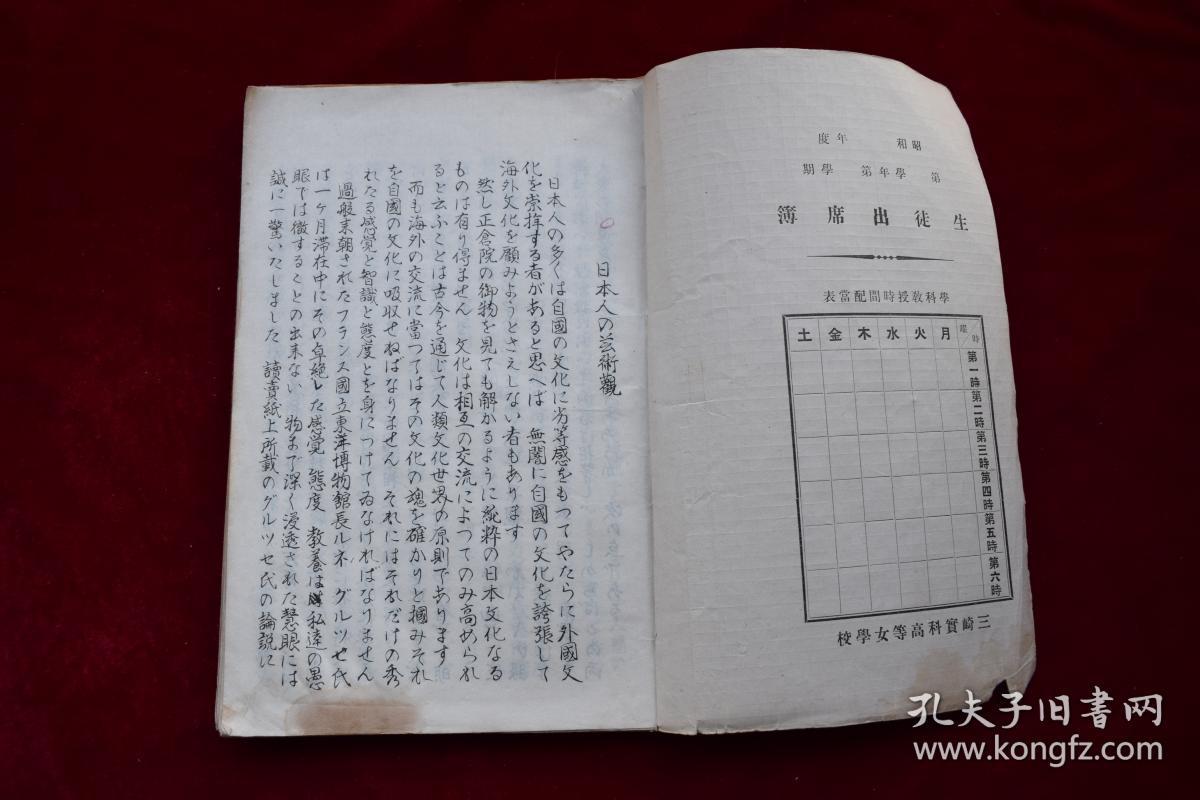 昭和　　年度
第　學年第　學期
生徒出席簿
學科教授時間配當表
時／曜
月
火
水
木
金
土
第一時
第二時
第三時
第四時
第五時
第六時
三崎實科高等女學校
日本人の芸術觀
日本人の多くは自國の文化に劣等感をもつてやたらに外國文
化を崇拝する者があると思へば　無闇に自國の文化を誇張して
海外文化を顧みようとさえしない者もあります
然し正倉院の御物を見ても解かるように純粋の日本文化なる
ものは有り得ません　文化は相互の交流によつてのみ高められ
ると云ふことは古今を通じて人類文化世界の原則であります
而も海外の交流に當つてはその文化の魂を確かりと摑みそれ
を自國の文化に吸収せねばなりません　それにはそれだけの秀
れたる感覚と智識と態度とを身につけてゐなければなりません
過般来朝されたフランス國立東洋博物館長ルネ、グルツセ氏
は一ヶ月滞在中にその卓絶した感覚　態度　教養は私達の愚
眼では徴することの出来ない　物まで深く浸透された慧眼には
誠に一驚いたしました　讀賣紙上所載のグルツセ氏の論説に
孔夫子旧書网
www.kongfz.com